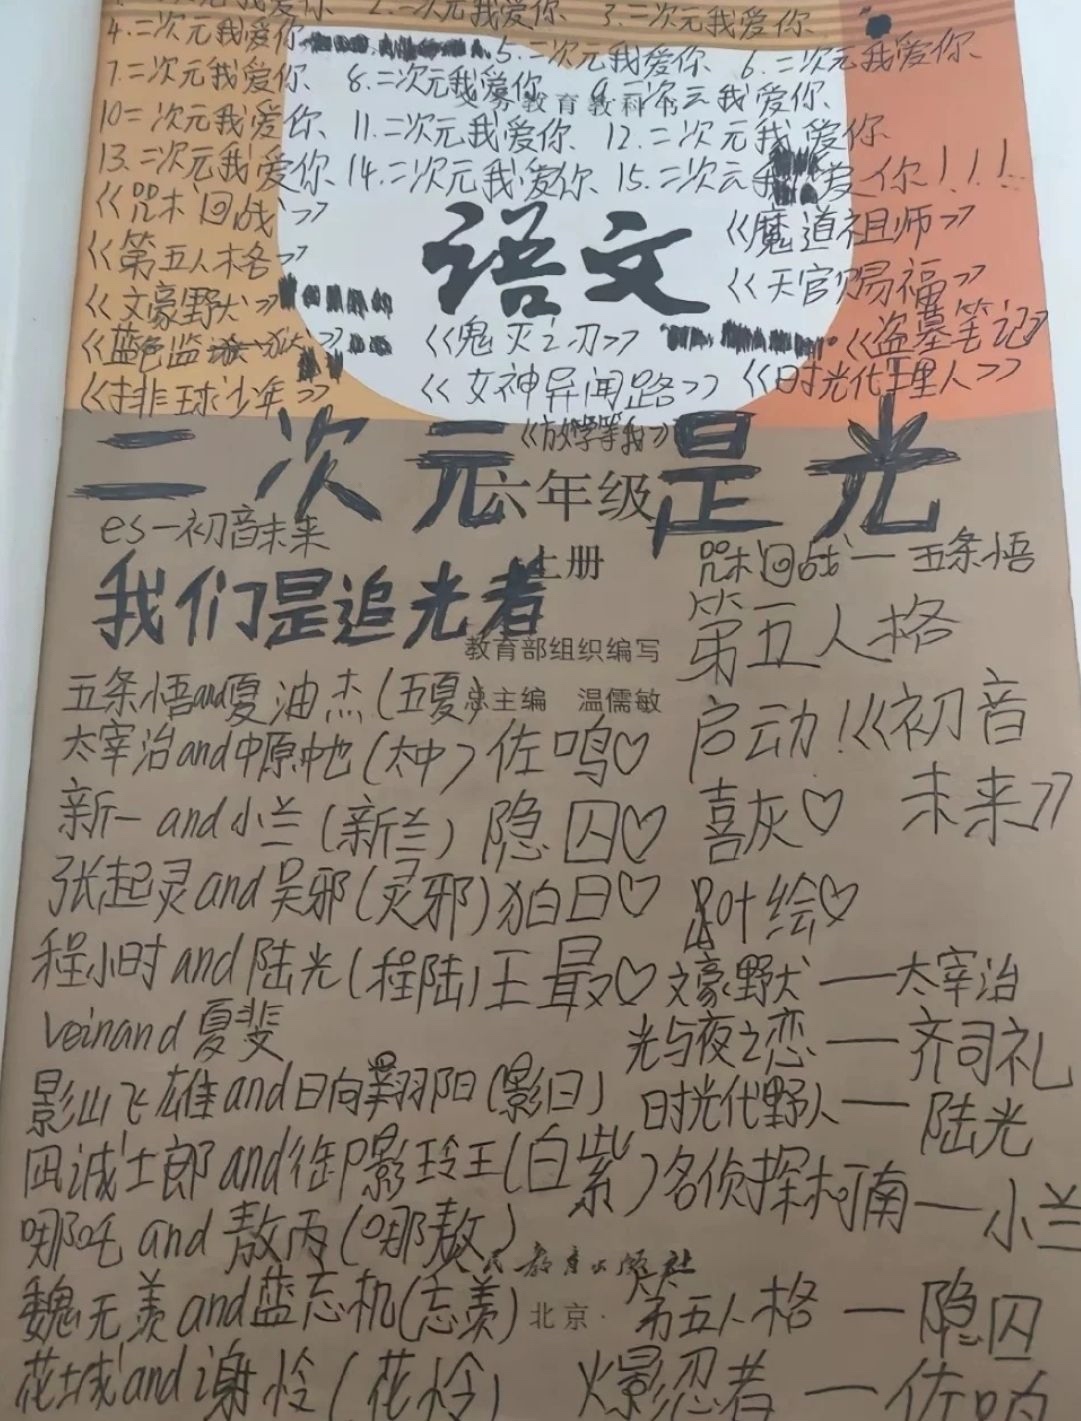 1.二次元我爱你 2.二次元我爱你 3.二次元我爱你
4.二次元我爱你 5.二次元我爱你、 6.二次元我爱你、
7.二次元我爱你、 8.二次元我爱你、 9.二次云我爱你、
义务教育教科书
10二次元我爱你、 11.二次元我爱你、 12.二次元我爱你
13.二次元我爱你、 14.二次元我爱你、 15.二次云我爱你!!!
《咒术回战》
《魔道祖师》
《第五人格》
语文
《天官赐福》
《文豪野犬》
《蓝色监狱》 《鬼灭之刃》 《盗墓笔记》
《排球少年》 《女神异闻路》 《时光代理人》
《放学等我》
二次元是光
六年级
es一初音未来
上册
咒术回战一五条悟
我们是追光者
第五人格
教育部组织编写
启动!《初音
未来》
总主编 温儒敏
五条悟and夏油杰(五夏)
太宰治and中原中也(太中) 佐鸣♡
新一and小兰(新兰) 隐囚♡ 喜灰♡
张起灵and吴邪(灵邪) 狛日♡ 叶绘♡
程小时and陆光(程陆) 王最♡ 文豪野犬——太宰治
veinand夏斐 光与夜之恋——齐司礼
影山飞雄and日向翔阳(影日) 时光代野人——陆光
凪诚士郎and御影玲王(白紫) 名侦探柯南——小兰
哪吒and敖丙(哪敖)
人民教育出版社
魏无羡and蓝忘机(忘羡) 北京· 第五人格——隐囚
花城and谢怜(花怜) 火影忍者——佐鸣